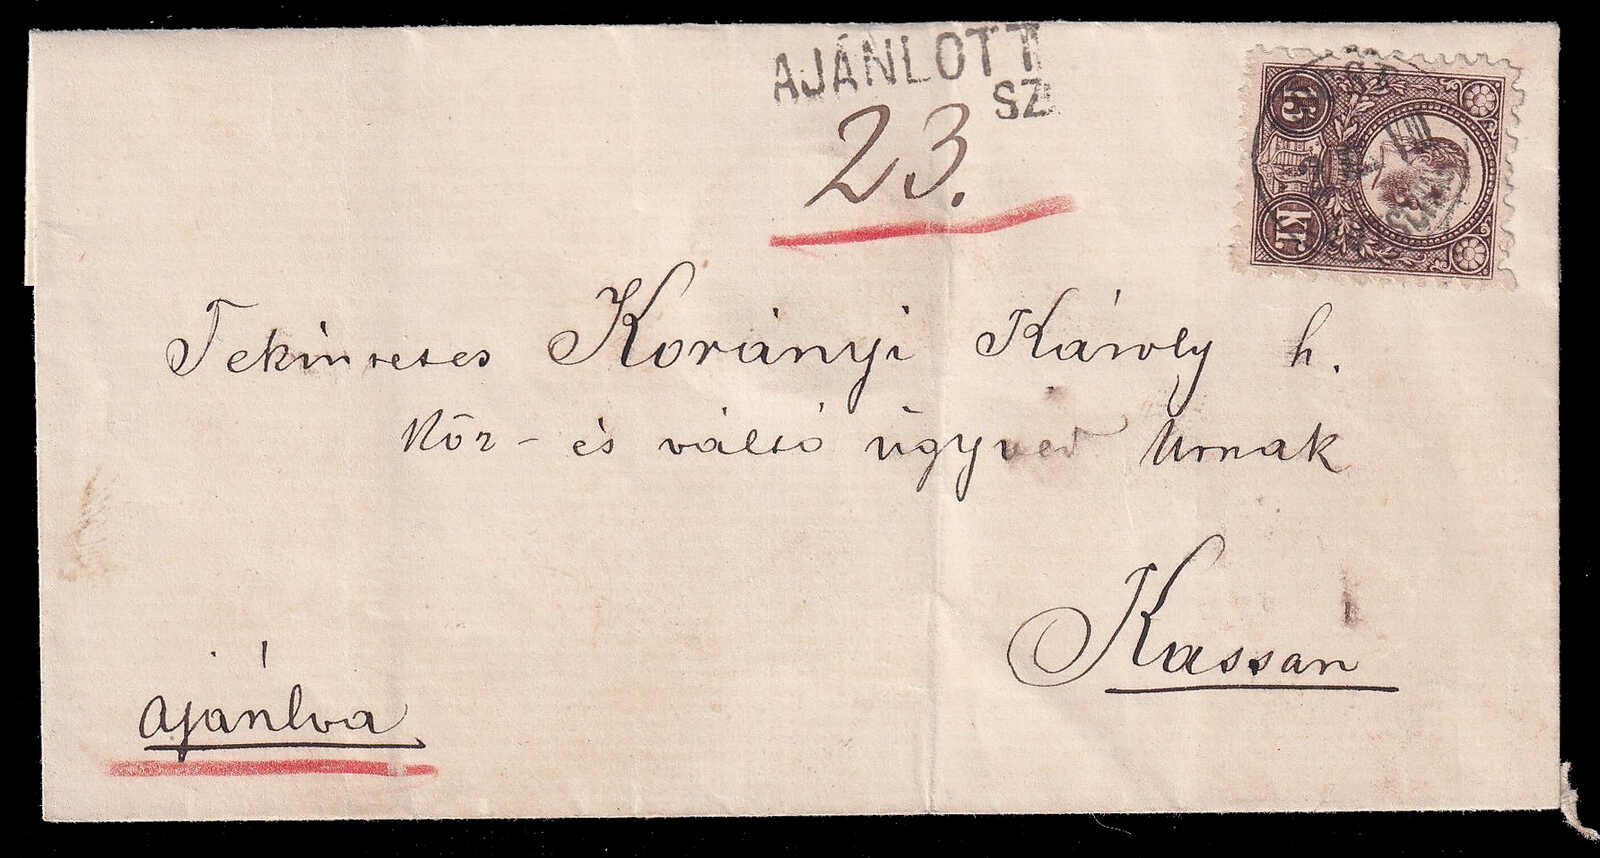 AJÁNLOTT
SZ.
23.
15
Kr.
Tekintetes Korányi Károly h.
Köz - és váltó ügyved Urnak
Kassan
ajánlva